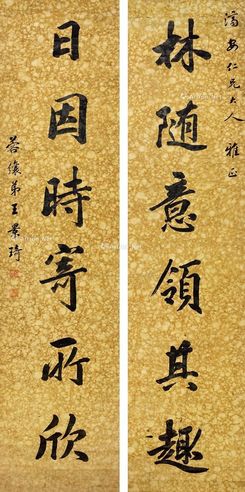 濤安仁兄大人 雅正
林随意領其趣
日因時寄所欣
蓉儂弟王景琦